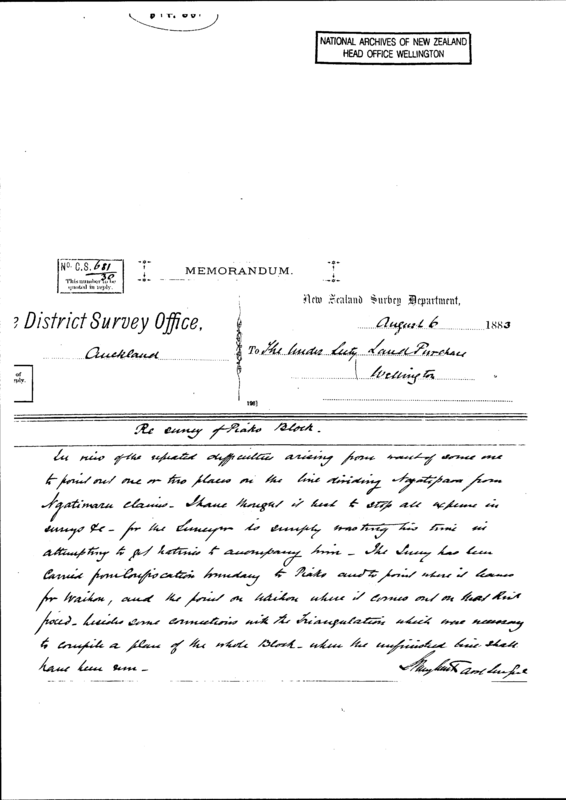 NATIONAL ARCHIVES OF NEW ZEALAND
HEAD OFFICE WELLINGTON
No. C.S. 681/30
This number to be
quoted in reply.
MEMORANDUM.
New Zealand Survey Department,
District Survey Office,
August 6 1883
Auckland
To The Under Secty Land Purchase
Wellington
of
reply.
Re survey of Piako Block.
In view of the repeated difficulties arising from want of some one
to point out one or two places on the line dividing Ngatipaoa from
Ngatimaru claims - I have thought it best to stop all expense in
surveys &c - for the Surveyor is simply wasting his time in
attempting to get natives to accompany him - The Survey has been
Carried from Confiscation boundary to Piako and to point where it leaves
for Waihou, and the point on Waihou where it comes out on that River
fixed - besides some connections with the Triangulation which were necessary
to compile a plan of the whole Block - when the unfinished line shall
have been run -